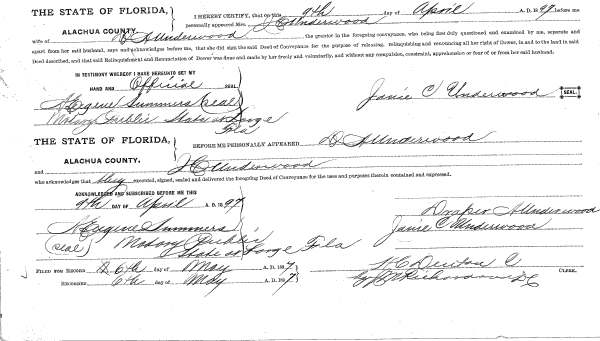 THE STATE OF FLORIDA,
ALACHUA COUNTY.
I HEREBY CERTIFY, that on this 9th day of April A. D. 1897 before me
personally appeared Mrs. J C Underwood
wife of D A Underwood, the grantor in the foregoing conveyance, who being first duly questioned and examined by me, separate and
apart from her said husband, says and acknowledges before me, that she did sign the said Deed of Conveyance for the purpose of releasing, relinquishing and renouncing all her right of Dower, in and to the land in said
Deed described, and that said Relinquishment and Renunciation of Dower was done and made by her freely and voluntarily, and without any compulsion, constraint, apprehension or fear of or from her said husband.
IN TESTIMONY WHEREOF I HAVE HEREUNTO SET MY
HAND AND Official SEAL
Eugene Summers (seal)
Janie C Underwood SEAL.
Notary Public State at Large
Fla
THE STATE OF FLORIDA,
ALACHUA COUNTY.
BEFORE ME PERSONALLY APPEARED D A Underwood
and J C Underwood
who acknowledges that they executed, signed, sealed and delivered the foregoing Deed of Conveyance for the uses and purposes therein contained and expressed.
ACKNOWLEDGED AND SUBSCRIBED BEFORE ME THIS
9th DAY OF April A. D. 1897
Draper A Underwood
Eugene Summers
Janie C Underwood
(seal) Notary Public
State at Large Fla
FILED FOR RECORD 6th day of May A. D. 1897
H C Denton CLERK.
RECORDED 6th day of May 1897
Richardson D C